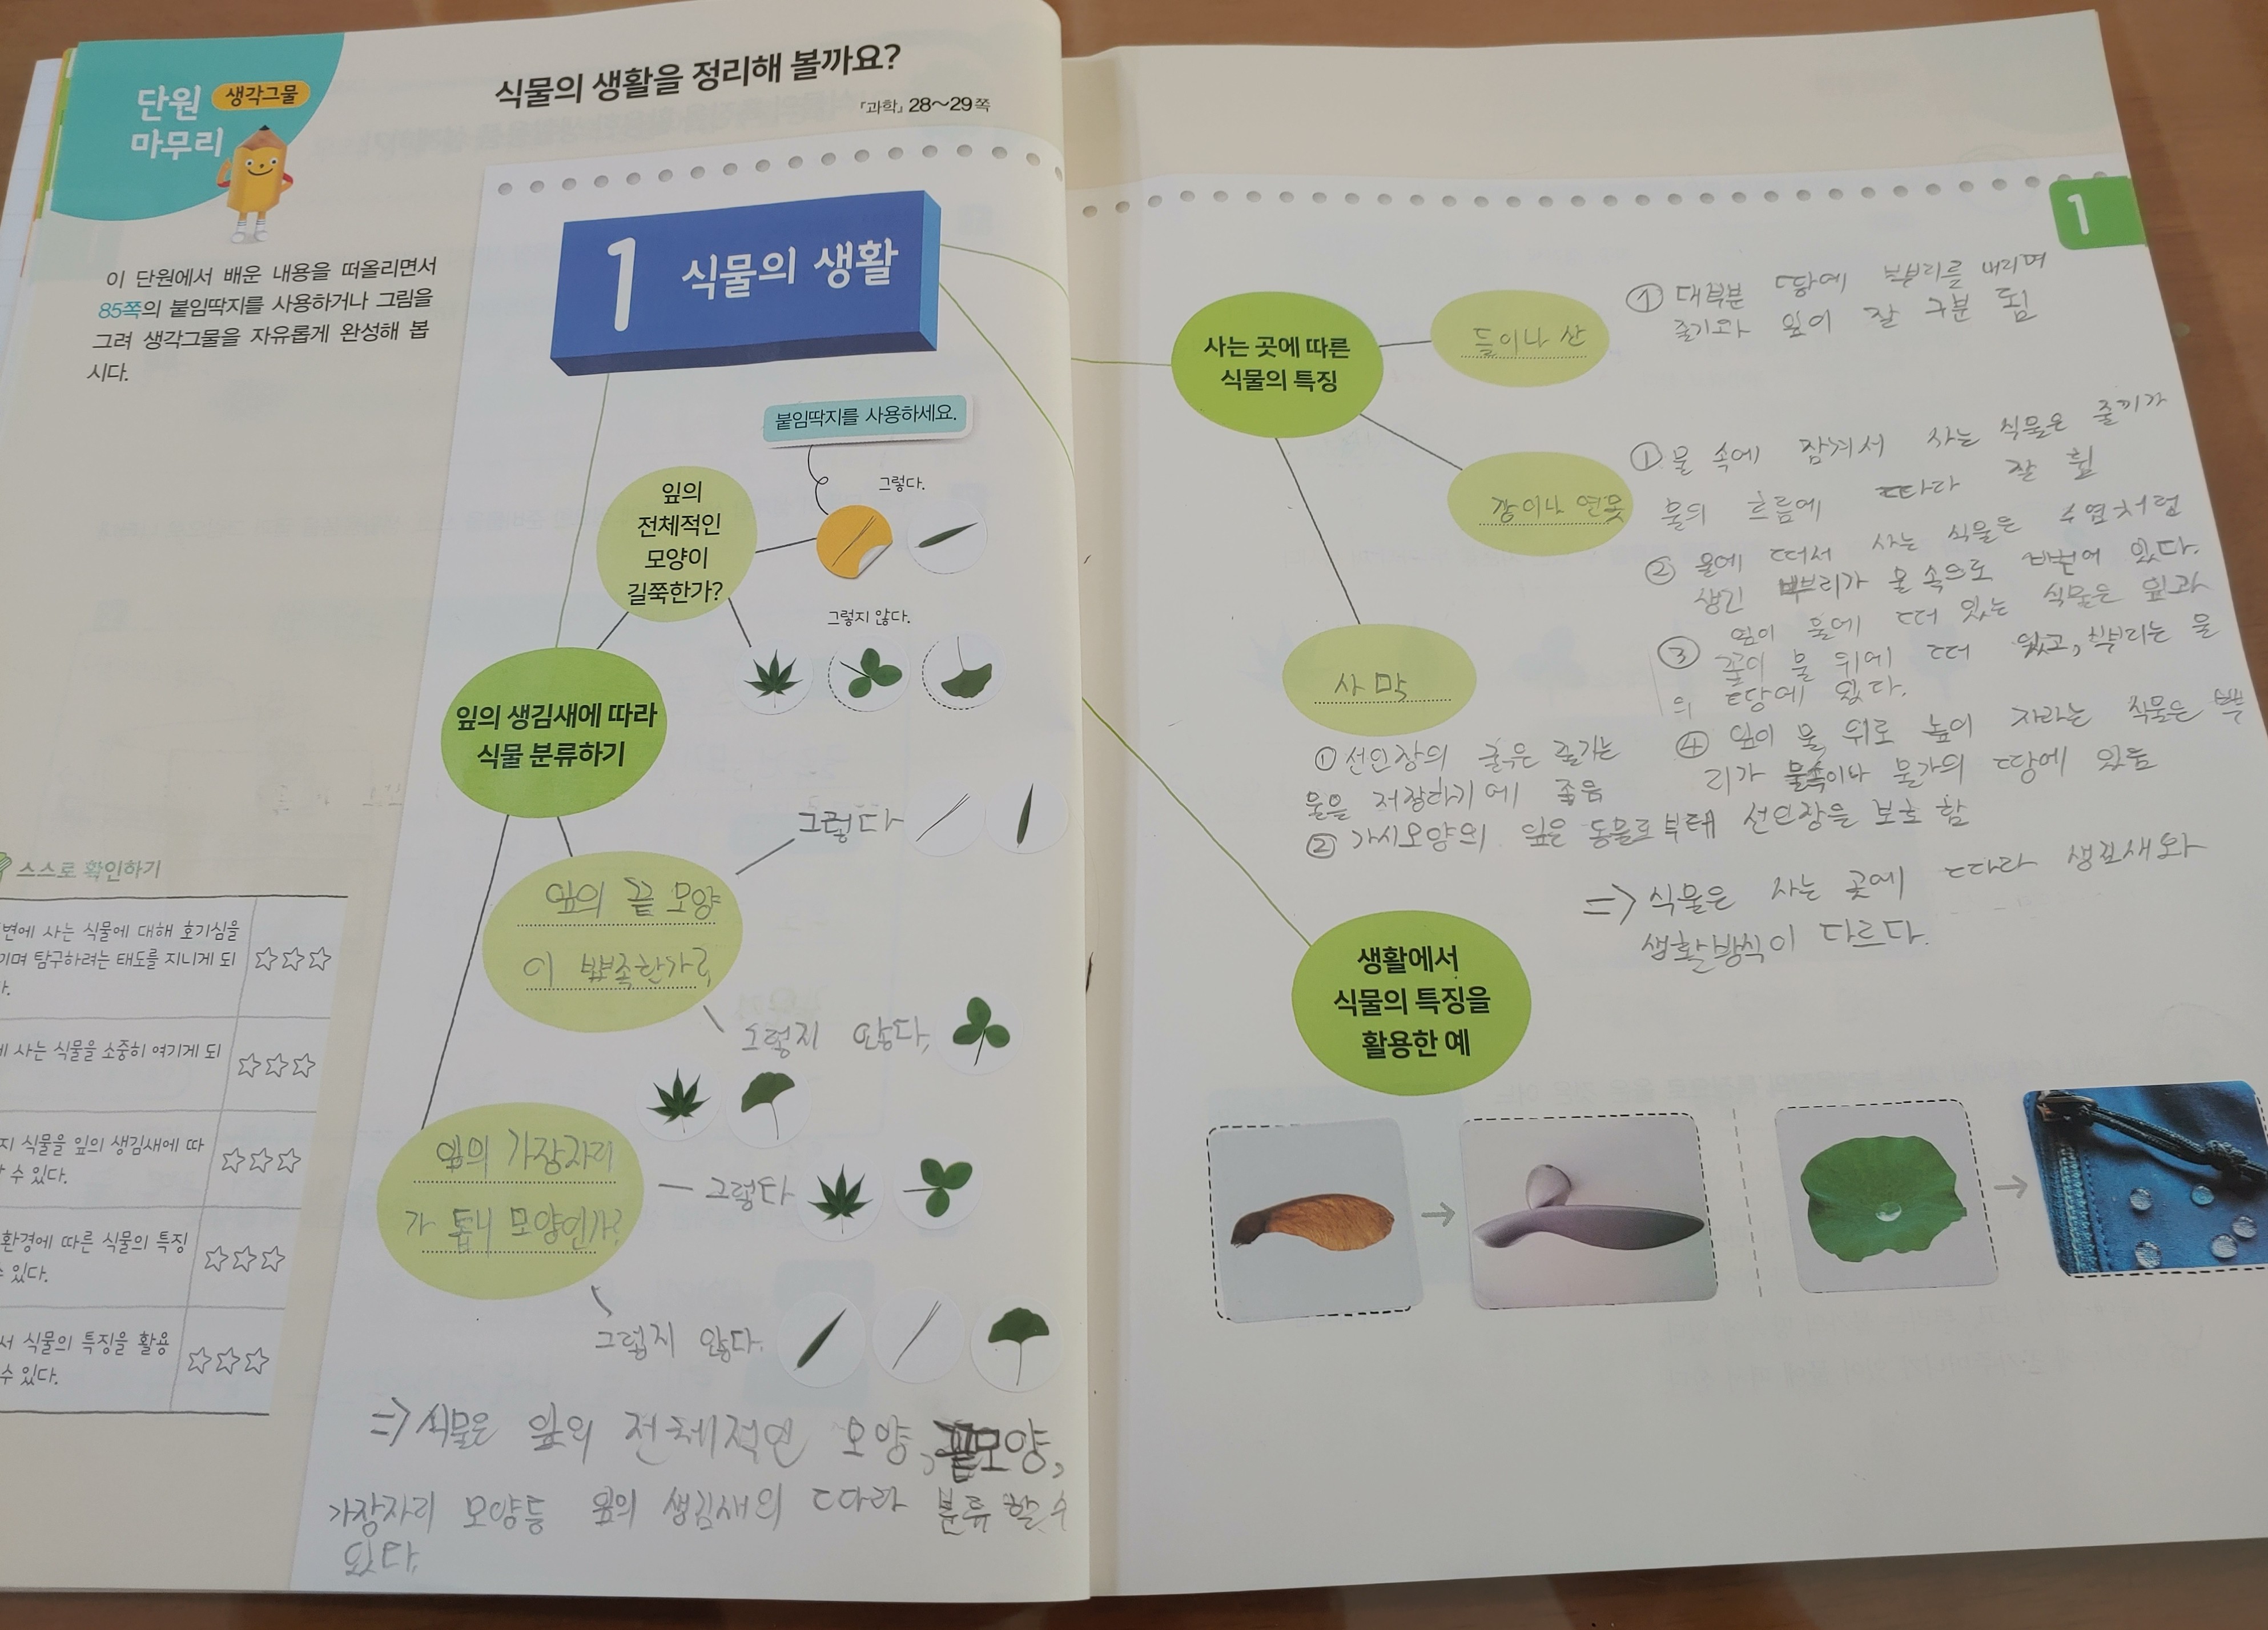 단원
마무리
생각그물
식물의 생활을 정리해 볼까요?
『과학』 28~29쪽
이 단원에서 배운 내용을 떠올리면서
85쪽의 붙임딱지를 사용하거나 그림을
그려 생각그물을 자유롭게 완성해 봅
시다.
1 식물의 생활
붙임딱지를 사용하세요.
잎의
전체적인
모양이
길쭉한가?
그렇다.
그렇지 않다.
잎의 생김새에 따라
식물 분류하기
잎의 끝 모양
이 뾰족한가?
그렇다
그렇지 않다.
잎의 가장자리
가 톱니 모양인가?
그렇다
그렇지 않다.
=> 식물은 잎의 전체적인 모양, 끝모양,
가장자리 모양등 잎의 생김새의 따라 분류 할 수
있다.
스스로 확인하기
변에 사는 식물에 대해 호기심을
이며 탐구하려는 태도를 지니게 되
다.
에 사는 식물을 소중히 여기게 되
지 식물을 잎의 생김새에 따
할 수 있다.
환경에 따른 식물의 특징
수 있다.
서 식물의 특징을 활용
수 있다.
1
사는 곳에 따른
식물의 특징
들이나 산
① 대부분 땅에 뿌리를 내리며
줄기와 잎이 잘 구분 됨
강이나 연못
① 물 속에 잠겨서 사는 식물은 줄기가
물의 흐름에 따라 잘 휨
② 물에 떠서 사는 식물은 수염처럼
생긴 뿌리가 물 속으로 뻗어 있다.
③ 잎이 물에 떠 있는 식물은 잎과
꽃이 물 위에 떠 있고, 뿌리는 물
의 땅에 있다.
④ 잎이 물 위로 높이 자라는 식물은 뿌
리가 물속이나 물가의 땅에 있음
사막
① 선인장의 굵은 줄기는
물을 저장하기에 좋음
② 가시모양의 잎은 동물로부터 선인장을 보호 함
=> 식물은 사는 곳에 따라 생김새와
생활방식이 다르다.
생활에서
식물의 특징을
활용한 예